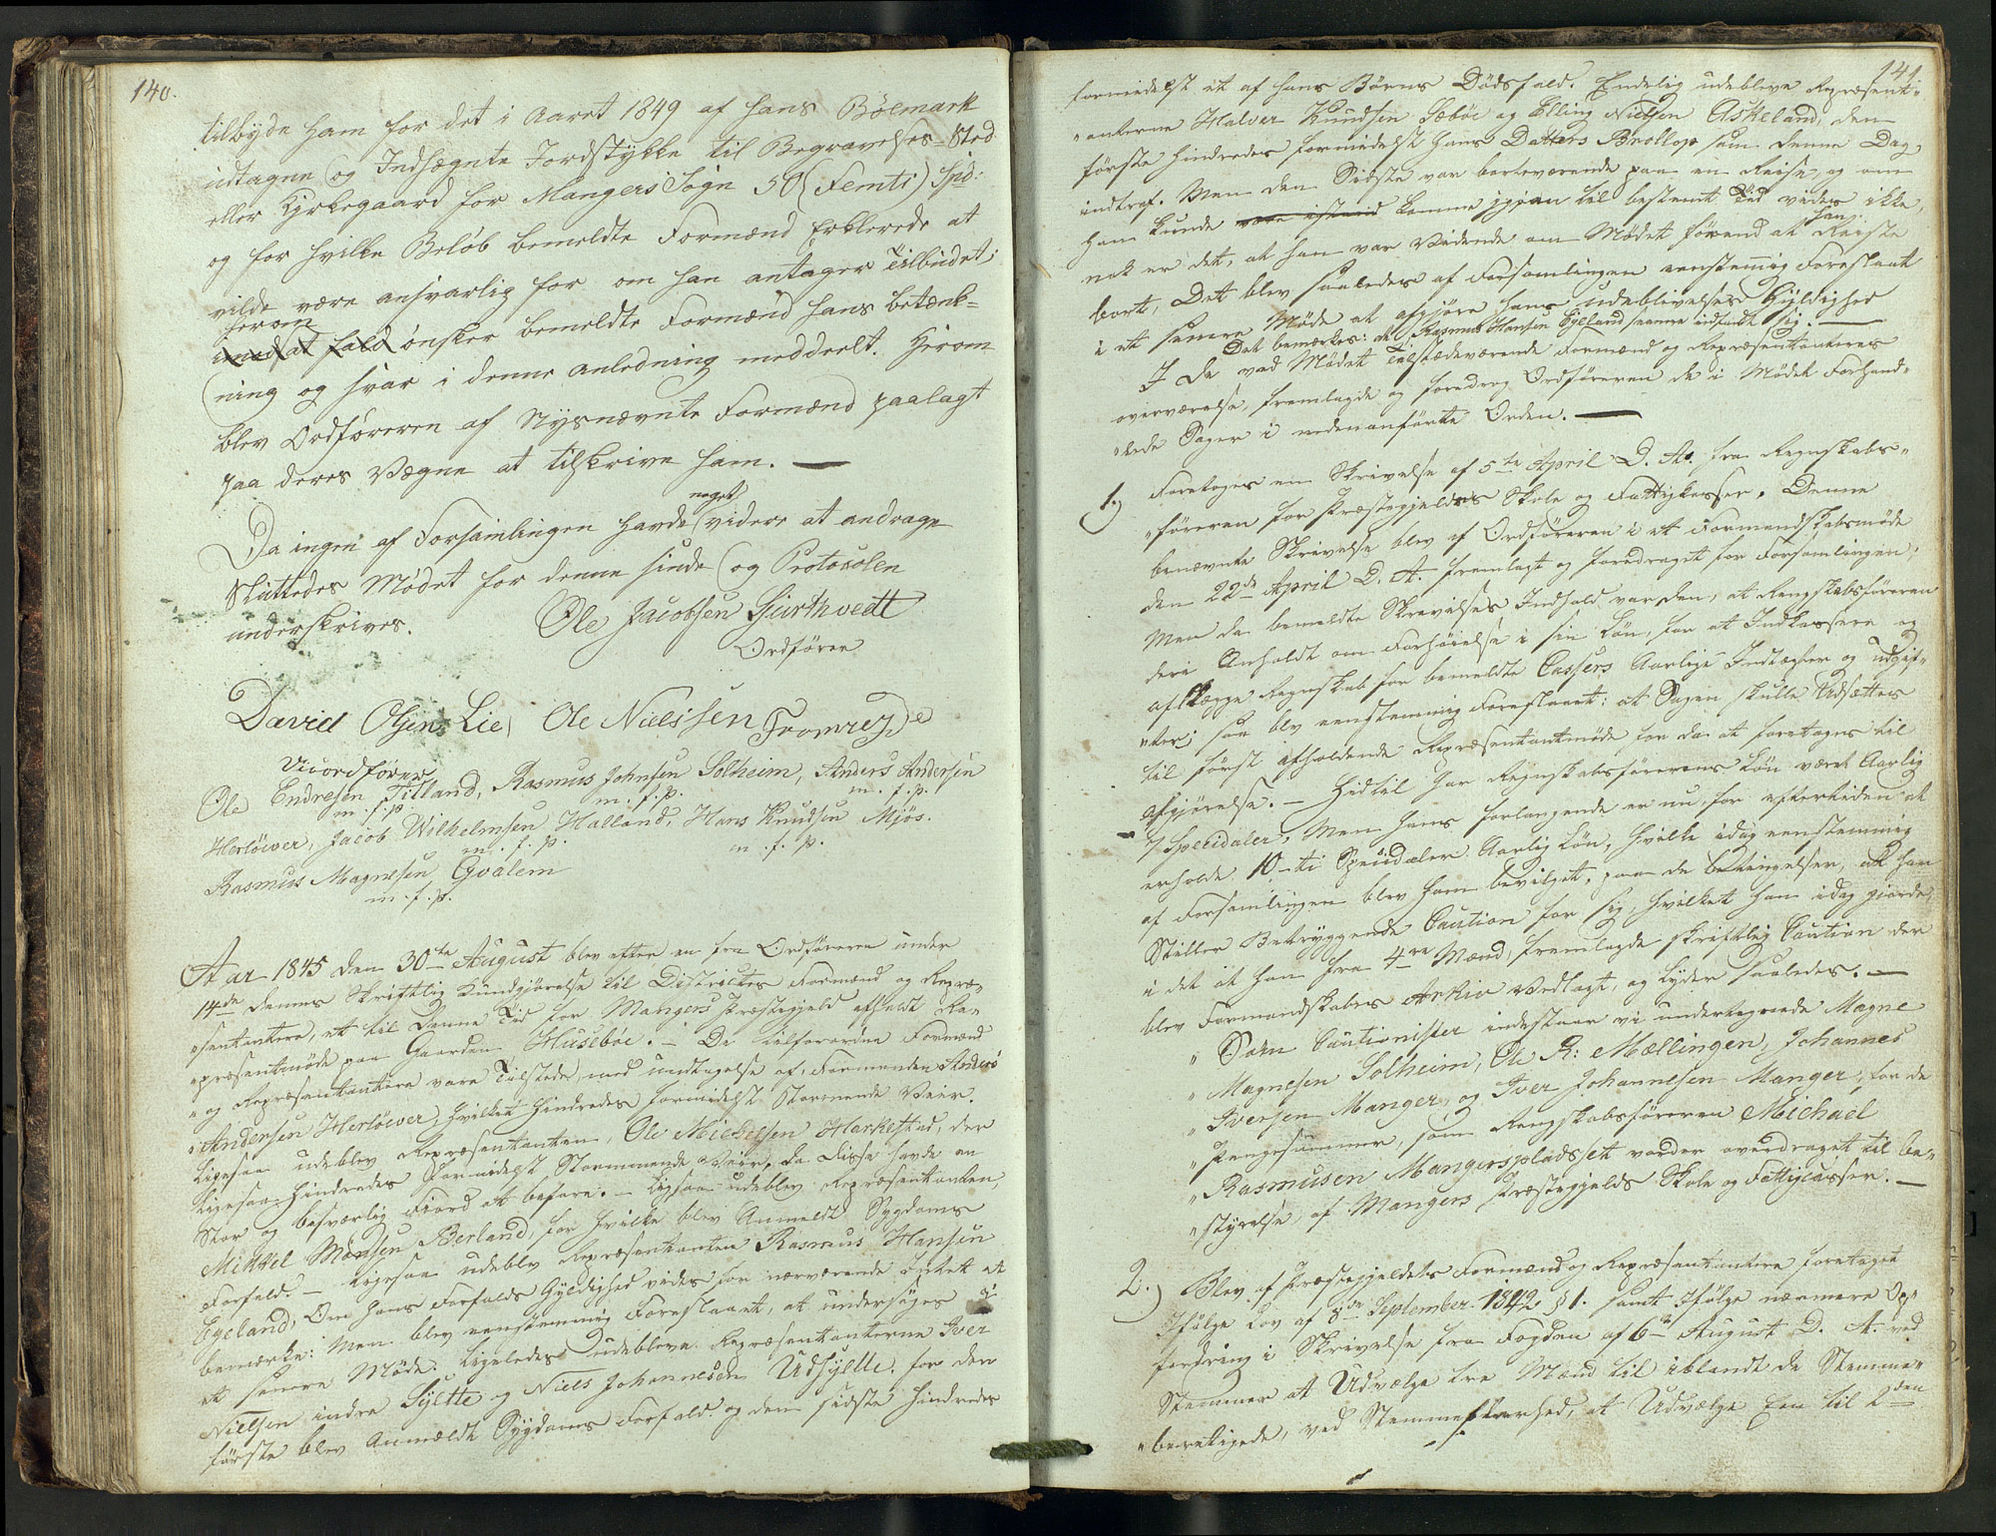 140.
tilbyde ham for det i Aaret 1849 af hans Bøemark
udtagne og Indhegnte Jordstykke til Begravelses-Sted
eller Kirkegaard for Mangers Sogn 50 (Femti) Spd:
og for hvilke Beløb bemeldte Formænd Erklerede at
vilde være ansvarlig for om han antager Tilbudet;
herom
imod at fald ønsker bemeldte Formænd hans betænk-
ning og svar i denne anledning meddeelt. Herom
blev Ordføreren af Nysnævnte Formænd paalagt
paa deres Vægne at tilskrive ham. —
noget
Da ingen af Forsamlingen havde videre at andrage
Sluttedes Mødet for denne sinde og Protocolen
underskrives.
Ole Jacobsen Gjurthvedt
Ordfører
David Olsen Lie, Ole Nielssen Fromrejde
Viceordfører
Ole Endresen Titland, Rasmus Johnsen Solheim, Anders Andersen
m. f. p. m. f. p. m. f. p.
Herløiver, Jacob Wilhelmsen Halland, Hans Knudsen Mjøs.
m. f. p. m. f. p.
Rasmus Magnesen Qvalem
m. f. p.
Aar 1845 den 30te August blev efter en fra Ordføreren under
14de dennes Skriftlig Kundgjørelse til Districtes Formænd og Repræ-
"sentantere, et til denne Tid for Mangers Præstegjeld afholdt Re-
"præsentmøde paa Gaarden Husebøe. — De tilforordne Formænd
" og Repræsentantere vare Tilstede, med undtagelse af: Formanden Anders
"Andersen Herløiver, hvilket hindredes formedelst Stormende Veir.
Ligesaa udeblev Repræsentanten, Ole Michelsen Harkestad, der
Ligesaa hindredes formedelst Stormmende Veir, da disse havde en
Stor og besværlig Fiord at befare. — Ligesaa udeblev Repræsentanten
Mikkel Monsen Berland, for hvilke blev Anmeldt Sygdoms
Forfald. — Ligesaa udeblev Repræsentanten Rasmus Hansen
Egeland, Om hans Forfalds Gyldighed vides for nærværende intet at
bemærke: Men blev eenstemmig Foreslaaet, at undersøges i
et senere Møde. Ligeledes udebleve Repræsentanterne Iver
Nielsen indre Sylte og Niels Johannesen Udsylte. for den
første blev Anmældt Sygdoms Forfald. og den sidste hindredes
141.
formedelst et af hans Børns Dødsfald. Endelig udebleve Repræsent-
"anterne Halver Knudsen Sæbøe og Elling Nielsen Askeland, den
første hindredes formedelst hans Datters Brøllop som denne Dag
indtraf. Men den Sidste var borteværende paa en Reise, og om
ham kunde være istand komme igjen til bestemt Tid vides ikke,
han
nok er det, at han var Vidende om Mødet førend at Reiste
bort, Det blev saaledes af Forsamlingen eenstemmig Foreslaaet
i et senere Møde at afgjøre hans udeblivelses Gyldighed
Det bemærkes: at Rasmus Hansen Egeland senere indfandt sig. —
I De ved Mødet Tilstedeværende Formænd og Repræsentanteres
overværelse, fremlagde og foredrog Ordføreren de i Mødet Forhand-
"lede Sager i nedenanførte Orden. —
1.) Foretages en Skrivelse af 5te April D. A. fra Regnskabs-
"føreren for Præstegjeldets Skole og Fattigkasser. Denne
benævnte Skrivelse blev af Ordføreren i et Formandskabsmøde
den 22de April D. A. fremlagt og foredraget for Forsamlingen;
Men da bemeldte Skrivelses Indhold var den, at Regnskabsføreren
deri Anholdt om Forhøielse i sin Løn, for at Indkassere og
aflægge Regnskab for bemeldte Cassers Aarlige Indtægter og Udgif-
"ter; saa blev eenstemmig Foreslaaet: at Sagen skulle Udsættes
til først afholdende Repræsentantmøde for da at foretages til
Afgjørelse. — Hidtil har Regnskabsførerens Løn været Aarlig
7 Specidaler, Men hans forlangende er nu, for eftertiden at
erholde 10-ti Speciedaler Aarlig Løn, hvilke idag eenstemmig
af Forsamlingen blev ham bevilget, paa de betingelser, at han
Stiller Betryggende Caution for sig, hvilket han idag gjorde,
i det at han fra 4re Mænd, fremlagde skriftlig Caution der
blev Formandskabets Arkiv Vedlagt, og lyder saaledes. —
" Som Cautionister indestaar vi undertegnede Magne
" Magnesen Solheim, Ole R: Mællingen, Johannes
" Iversen Manger, og Iver Johannesen Manger, for de
" Pengesummer, som Regnskabsføreren Michael
" Rasmusen Mangerspladset vorder overdraget til be-
" styrelse, af Mangers Præstegjelds Skole og Fattigcasser. —
2.) Blev af Præstegjeldets Formænd og Repræsentantere foretaget
Ifølge Lov af 8de September 1842 § 1. samt Ifølge nærmere Op-
fordring i Skrivelse fra Fogden af 6te August D. A. ved
Stemmer at Udvælge tre Mænd til iblandt de Stemme-
"berettigede, ved Stemmefleerhed, at Udvælge Een til 2den